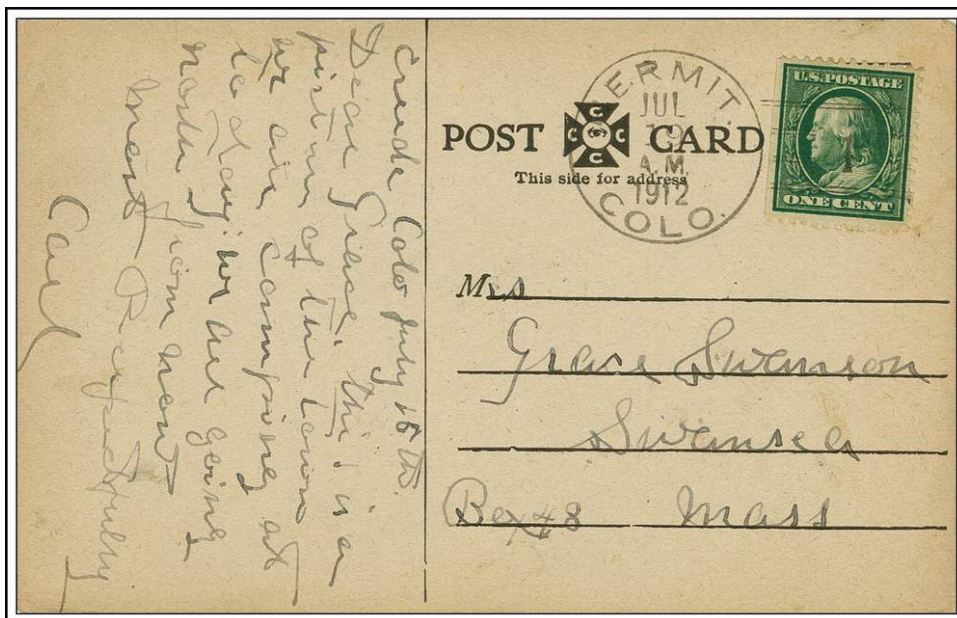 Creede Colo July 18 th.
Dear Grace this is a
picture of the town
we are camping at
to day: we are going
north from now
Respectfully
Carl
POST CARD
C C C C
This side for address
ERMIT
JUL
A.M.
1912
COLO.
U.S. POSTAGE
1
ONE CENT
Mrs
Grace Swanson
Swansea
Box 48 Mass